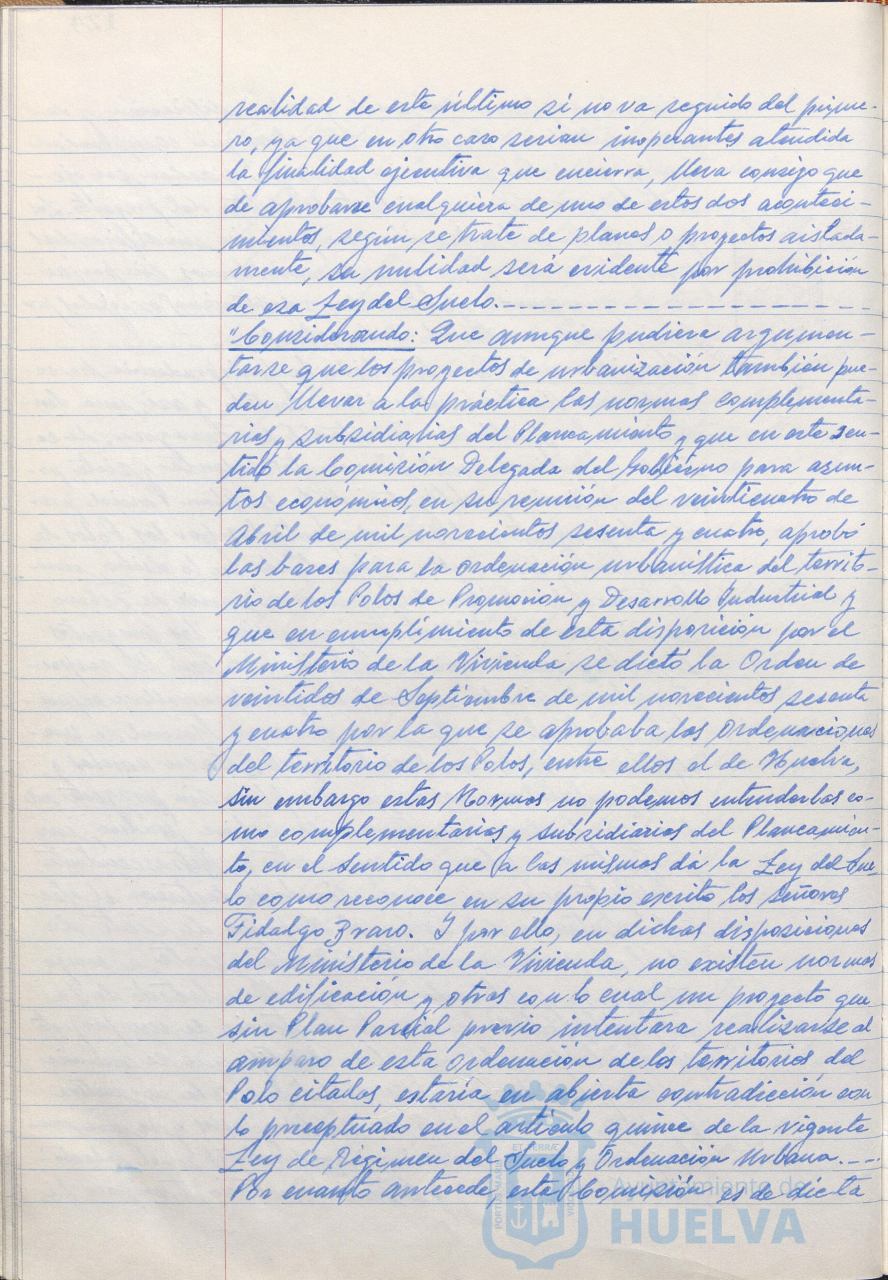 realidad de este último si no va seguido del prime-
ro, ya que en otro caso serian inoperantes atendida
la finalidad ejecutiva que encierra, lleva consigo que
de aprobarse cualquiera de uno de estos dos aconteci-
mientos, según se trate de planes o proyectos aislada-
mente, su nulidad será evidente por prohibición
de esa Ley del Suelo.
"Considerando: Que aunque pudiera argumen-
tarse que los proyectos de urbanización también pue-
den llevar a la práctica las normas complementa-
rias y subsidiarias del Planeamiento y que en este sen-
tido la Comisión Delegada del Gobierno para asun-
tos económicos, en su reunión del veinticuatro de
Abril de mil novecientos sesenta y cuatro, aprobó
las bases para la ordenación urbanística del territo-
rio de los Polos de Promoción y Desarrollo Industrial y
que en cumplimiento de esta disposición por el
Ministerio de la Vivienda se dictó la Orden de
veintidos de Septiembre de mil novecientos sesenta
y cuatro por la que se aprobaba las Ordenaciones
del territorio de los Polos, entre ellos el de Huelva,
sin embargo estas Normas no podemos entenderlas co-
mo complementarias y subsidiarias del Planeamien-
to, en el sentido que a las mismas dá la Ley del Sue-
lo como reconoce en su propio escrito los señores
Fidalgo Bravo. Y por ello, en dichas disposiciones
del Ministerio de la Vivienda, no existen normas
de edificación y otras con lo cual un proyecto que
sin Plan Parcial previo intentara realizarse al
amparo de esta ordenación de los territorios del
Polo citados, estaría en abierta contradicción con
lo preceptuado en el articulo quince de la vigente
Ley de Régimen del Suelo y Ordenación Urbana.
Por cuanto antecede, esta Comisión es de dicta
Ayuntamiento de
HUELVA